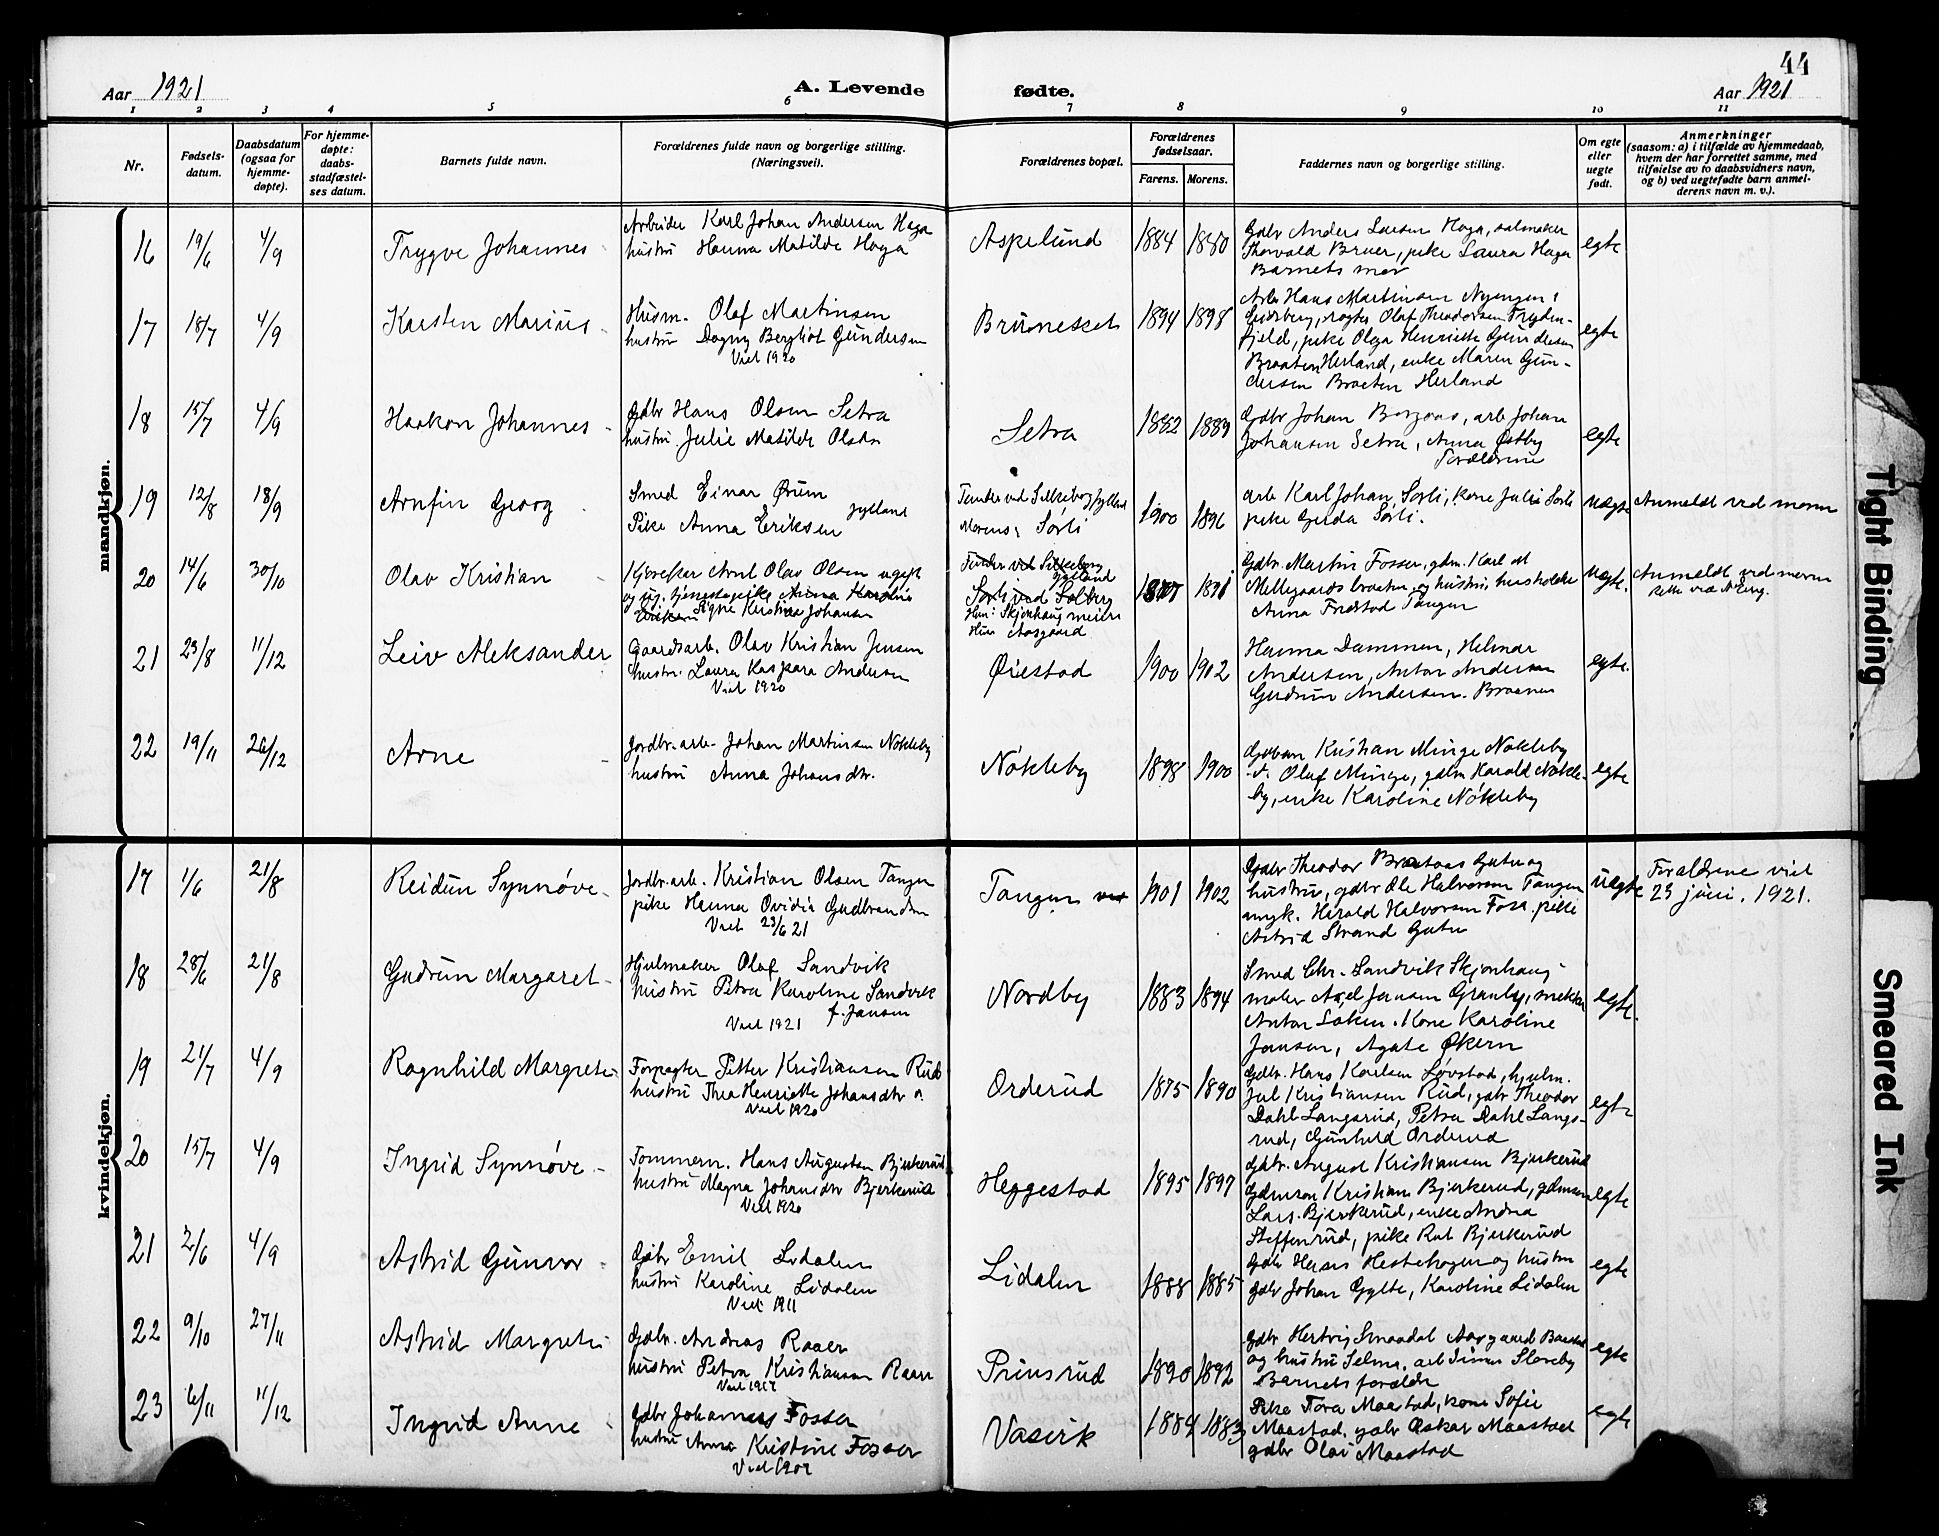 44
Aar 1921
A. Levende
fødte.
Aar 1921
1 2 3 4 5 6 7 8 9 10 11
Nr.
Fødsels-
datum.
Daabsdatum
(ogsaa for
hjemme-
døpte).
For hjemme-
døpte:
daabs-
stadfæstel-
ses datum.
Barnets fulde navn.
Forældrenes fulde navn og borgerlige stilling.
(Næringsvei).
Forældrenes bopæl.
Forældrenes
fødselsaar.
Farens. Morens.
Faddernes navn og borgerlige stilling.
Om egte
eller
uegte
født.
Anmerkninger
(saasom: a) i tilfælde av hjemmedaab,
hvem der har forrettet samme, med
tilføielse av to daabsvidners navn,
og b) ved uegtefødte barn anmel-
derens navn m. v.).
mandkjøn.
16 19/6 4/9 Trygve Johannes
Arbeider Karl Johan Andersen Haga
hustru Hanna Matilde Haga
Aspelund 1884 1880
Gdbr Anders Larsen Haga, salmaker
Thorvald Bruer, pike Laura Haga
Barnets mor
egte
17 18/7 4/9 Karsten Marius
Husm. Olaf Martinsen
hustru Dagny Bergliot Gundersen
Viet 1920
1894 1898
Arb. Hans Martinsen
Olaf Theodorsen Fryden-
fjeld, pike Olga Henriette Gundersen
Braaten Herland, enke Maren Gun-
dersen Braaten Herland
egte
18 15/7 4/9 Haakon Johannes
Gdbr Hans Olsen Setra
hustru Julie Matilde Olsdtr
Setra 1882 1889
Gdbr Johan arb Johan
Johansen Setra, Anna Østby
Forældrene
egte
19 12/8 18/9 Arnfin Georg
Smed Einar Ørum Jylland
Pike Anna Eriksen
ved Silkeborg Jylland
Morens: Sørli
1900 1896
arb Karl Johan Sørli, kone Julie Sørli
pike Gerda Sørli.
uegte Anmeldt ved moren
20 14/6 30/10 Olav Kristian
Arnt Olav Olsen ugift
og ug. tjenestepike Anna Karoline
Eriksen Signe Kristine Johansen
ved Silkeborg
Jylland
Sørli ved Solberg
Han: Skjønhaug meieri
Hun Aasgaard
1891
Gdbr. Martin Fosser, gdm. Karl
Mellegaardsbraaten og hustru, husholder
Anna Tangen
uegte. Anmeldt ved moren
21 23/8 11/12 Leiv Aleksander
Gaardsarb. Olav Kristian Jensen
hustru Laura Kaspara Andersen
Viet 1920
Øiestad 1900 1902
Hanna Dammen, Helmar
Andersen, Anton Andersen
Gudrun Andersen. Braanen
egte.
22 19/11 26/12 Arne
Jordbr.arb. Johan Martinsen Nøkleby
hustru Anna Johansdtr.
Nøkleby 1898 1900
Kristian Minge Nøkleby
Olaf Minge, gdm Harald Nøkle-
by, enke Karoline Nøkleby
egte
kvindekjøn.
17 1/6 21/8 Reidun Synnøve
Jordbr.arb. Kristian Olsen Tangen
pike Hanna Ovidia Gudbrandsen
Viet 23/6 21
Tangen 1901 1902
Gdbr Theodor Braataas Gutu og
hustru, gdbr Ole Halvorsen Tangen
ungk. Harald Halvorsen Foss. pike
Astrid Strand Gutu
uegte Forældrene viet
23 juni. 1921.
18 28/6 21/8 Gudrun Margaret
Hjulmaker Olaf Sandvik
hustru Petra Karoline Sandvik
f. Jansen
Viet 1921
Nordby 1883 1894
Smed Chr. Sandvik Skjønhaug
maler Axel Jansen Granly, snekker
Anton Kone Karoline
Jansen, Agate Økern
egte.
19 21/7 4/9 Ragnhild Margrete
Forpagter Petter Kristiansen Rud
hustru Thea Henriette Johansdtr
Viet 1920
Orderud 1875 1890
Gdbr. Hans Karlsen Løvstad, hjulm.
Jul Kristiansen Rud, gdbr Theodor
Dahl Langsrud, Petra Dahl Langs-
rud, Gunhild Orderud
egte
20 15/7 4/9 Ingrid Synnøve
Tømmerm. Hans Augustsen Bjerkerud
hustru Magna Johansdtr Bjerkerud
Viet 1920
Heggestad 1895 1897
Gdbr. August Kristiansen Bjerkerud
Gdmsøn Kristian Bjerkerud, gdmsøn
Lars Bjerkerud, enke Andrea
Steffenrud, pike Rut Bjerkerud
egte
21 2/6 4/9 Astrid Gunvor
Gdbr Emil Lidalen
hustru Karoline Lidalen
Viet 1911
Lidalen 1888 1885
Gdbr Hans Hestehagen og hustru
gdbr Johan Gylte, Karoline Lidalen
egte
22 9/10 27/11 Astrid Margrete
Gdbr. Andreas Raaen
hustru Petra Kristiansen Raaen
Viet 1917
Prinsrud 1890 1892
Gdbr Hertvig Smaadal Aasgaard
og hustru Selma. arb Simen Slereby
Barnets forældre
egte
23 6/11 11/12 Ingrid Anne
Gdbr Johannes Fosser
hustru Anna Kristine Fosser
Viet 1907
1884 1883
Pike Tora Maastad, kone Sofie
Maastad, gdbr Oskar Maastad
gdbr Olai Maastad
egte
Tight Binding
Smeared Ink